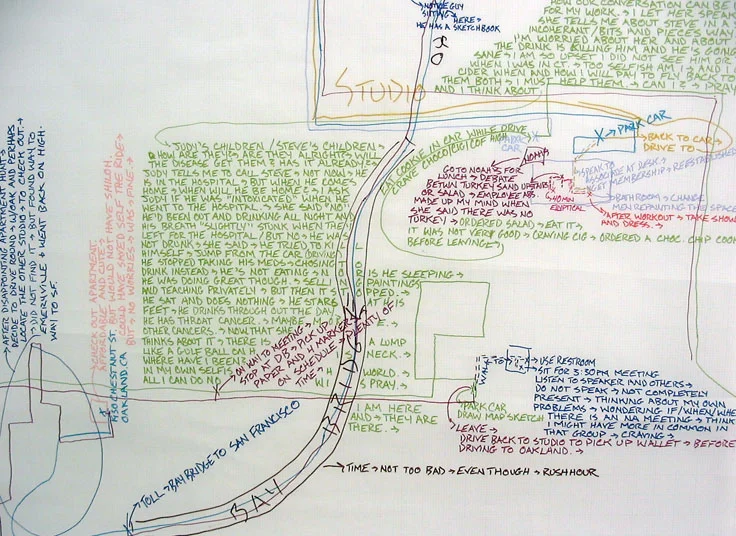 NOTICE GUY
SITTING
HERE →
HE HAS A SKETCHBOOK
HOW OUR CONVERSATION CAN BE
FOR MY WORK → I LET HER SPEAK
SHE TELLS ME ABOUT STEVE IN A
INCOHERANT/BITS AND PIECES WAY
I'M WORRIED ABOUT HER AND ABOUT
THE DRINK IS KILLING HIM AND HE'S GOING
SANE → I AM SO UPSET I DID NOT SEE HIM OR
WHEN I WAS IN CT. → TOO SELFISH AM I → AND I
CIDER WHEN AND HOW I WILL PAY TO FLY BACK TO
THEM BOTH → I MUST HELP THEM → CAN I? → PRAY
AND I THINK ABOUT
STUDIO
PARK CAR
BACK TO CAR →
DRIVE TO
→ AFTER DISAPPOINTING APARTMENT HUNT →
DECIDE TO DRIVE AROUND W.OAK AND PERHAPS
LOCATE THE OTHER STUDIO → TO CHECK OUT. →
→ DID NOT FIND IT → BUT FOUND WAY TO
EMERYVILLE → WENT BACK ON HIGH-
WAY TO S.F.
CHECK OUT APARTMENT.
AFFORDABLE AND CUTE.
BUT WOULD NOT HAVE SHILOH.
COULD HAVE SAVED SELF THE RIDE →
BUT → NO WORRIES → WAS → FINE.
1930 CHESTNUT ST.
OAKLAND, CA
JUDY'S CHILDREN / STEVE'S CHILDREN →
HOW ARE THEY? → ARE THEY ALRIGHT? → WILL
THE DISEASE GET THEM? → HAS IT ALREADY?
JUDY TELLS ME TO CALL STEVE → NOT NOW → HE
IS IN THE HOSPITAL → BUT WHEN HE COMES
HOME → WHEN WILL HE BE HOME? → I ASK
JUDY IF HE WAS "INTOXICATED" WHEN HE
WENT TO THE HOSPITAL. → SHE SAID "NO"
HE'D BEEN OUT AND DRINKING ALL NIGHT AN
HIS BREATH "SLIGHTLY" STUNK WHEN THEY
LEFT FOR THE HOSPITAL / BUT NO → HE WAS
NOT DRUNK → SHE SAID → HE TRIED TO KI
HIMSELF → JUMP FROM THE CAR (DRIVING
HE STOPPED TAKING HIS MEDS → CHOSING
DRINK INSTEAD → HE'S NOT EATING → N
HE WAS DOING GREAT THOUGH → SELLI
AND TEACHING PRIVATELY → BUT THEN IT S
HE SAT AND DOES NOTHING → HE STARES
FEET → HE DRINKS THROUGH OUT THE DAY
HE HAS THROAT CANCER → MAYBE M
OTHER CANCERS. → NOW THAT SHE
THINKS ABOUT IT → THERE IS
LIKE A GOLF BALL ON H
WHERE HAVE I BEEN
IN MY OWN SELFIS
ALL I CAN DO
IS HE SLEEPING →
PAINTINGS
OPPED. →
AT HIS
A LUMP
NECK. →
WORLD. →
IS PRAY. →
I AM HERE
AND → THEY ARE
THERE. →
EAT COOKIE IN CAR WHILE DRIVE
CRAVE CHOC/CIG/COF HIGH
PARK CAR
NOAHS
GO TO NOAHS FOR
LUNCH → DEBATE
BETWN TURKEY SAND
OR SALAD → EMPLOYEE
MADE UP MY MIND WHEN
SHE SAID THERE WAS NO
TURKEY → ORDERED SALAD → EAT IT →
IT WAS NOT VERY GOOD → CRAVING CIG → ORDERED A CHOC. CHIP COOK
BEFORE LEAVING →
SPEAK TO
ASSOCIATE AT DESK →
GET MEMBERSHIP → REESTABLISHED
BATHROOM → CHANGE
MEN REPAINTING THE SPACE
ELIPTICAL
→ AFTER WORKOUT → TAKE SHOW
AND DRESS. →
ON WAY TO MEETING →
STOP AT DB → PICK UP
PAPER AND 4 MARKERS
ON SCHEDULE → PLENTY OF
TIME →
WALK
→ USE RESTROOM
SIT FOR 3:30PM MEETING
LISTEN TO SPEAKER AND OTHERS →
DO NOT SPEAK → NOT COMPLETELY
PRESENT → THINKING ABOUT MY OWN
PROBLEMS → WONDERING IF/WHEN/WHE
THERE IS AN NA MEETING → THINK
I MIGHT HAVE MORE IN COMMON IN
THAT GROUP → CRAVING →
PARK CAR
DRAW MAP SKETCH
LEAVE →
DRIVE BACK TO STUDIO TO PICK UP WALLET → BEFORE
DRIVING TO OAKLAND. →
→ TOLL → BAY BRIDGE TO SAN FRANCISCO
BAY BRIDGE
→ TIME → NOT TOO BAD → EVEN THOUGH → RUSH HOUR